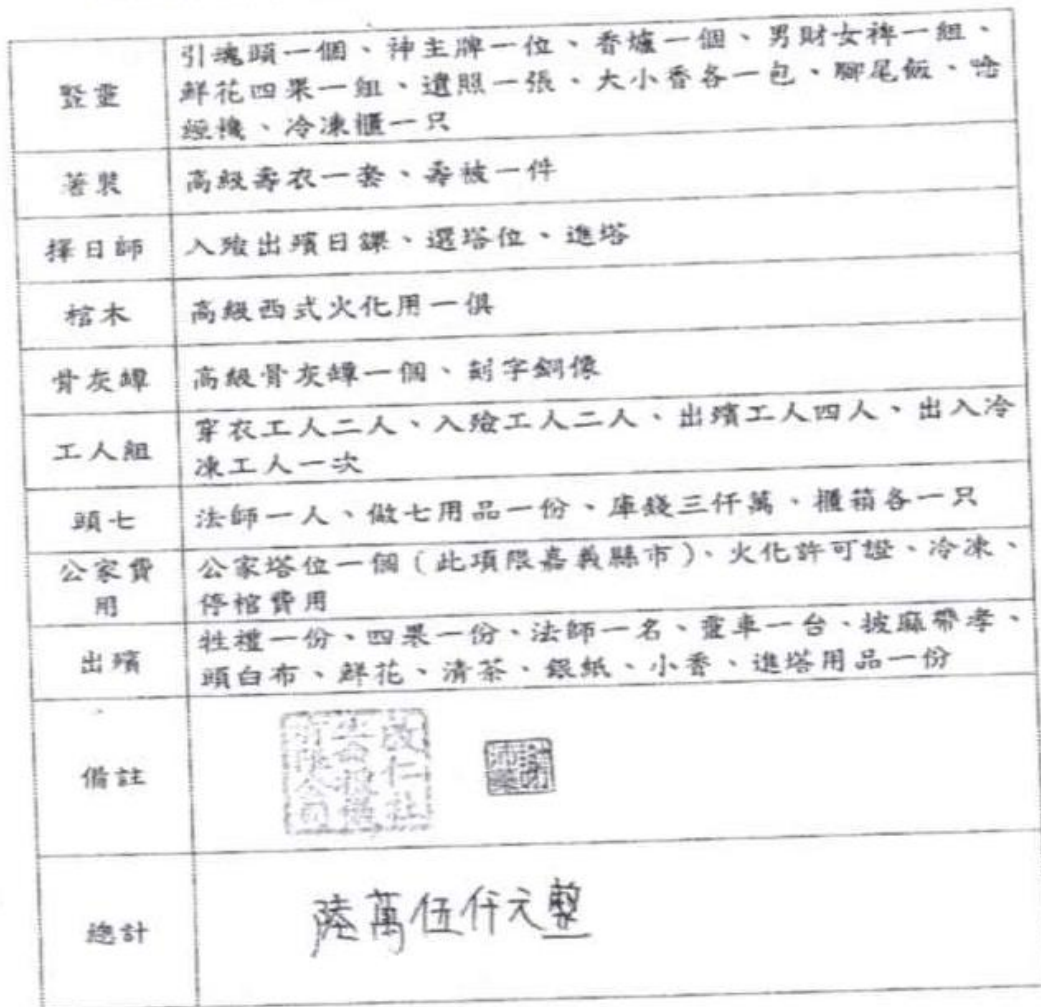 豎靈
引魂頭一個、神主牌一位、香爐一個、男財女裨一組、
鮮花四果一組、遺照一張、大小香各一包、腳尾飯、唸
經機、冷凍櫃一只
著裝
高級壽衣一套、壽被一件
擇日師
入殮出殯日課、選塔位、進塔
棺木
高級西式火化用一俱
骨灰罈
高級骨灰罈一個、刻字銅像
工人組
穿衣工人二人、入殮工人二人、出殯工人四人、出入冷
凍工人一次
頭七
法師一人、做七用品一份、庫錢三仟萬、櫃箱各一只
公家費
用
公家塔位一個(此項限嘉義縣市)、火化許可證、冷凍、
停棺費用
出殯
牲禮一份、四果一份、法師一名、靈車一台、披麻帶孝、
頭白布、鮮花、清茶、銀紙、小香、進塔用品一份
備註
總計
陸萬伍仟元整